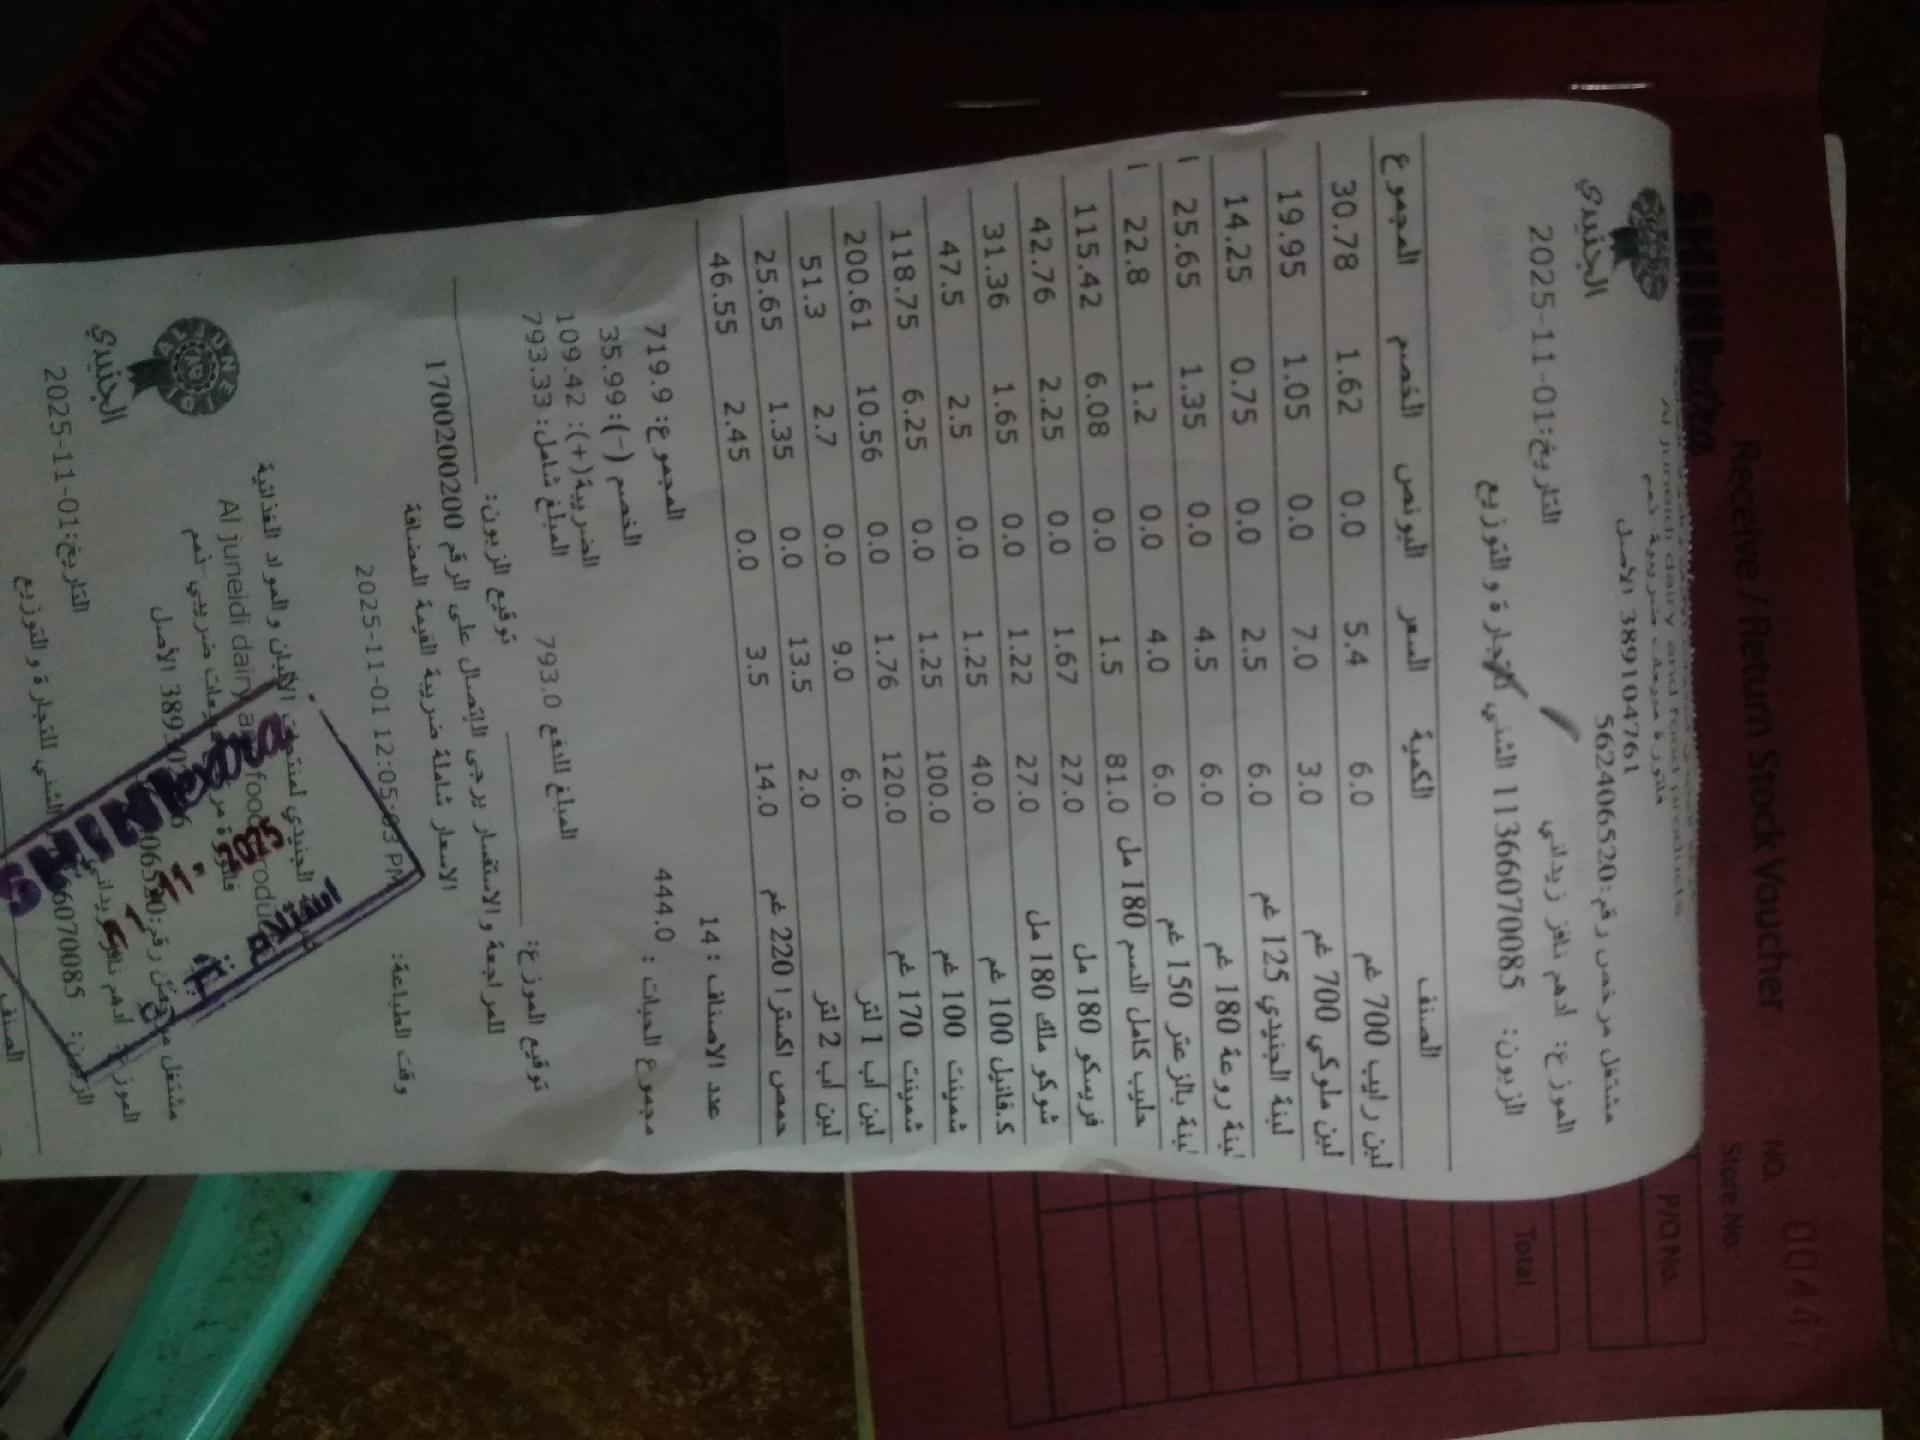 SHINI extra
Receive / Return Stock Voucher
NO. 00447
Store No:
P/O No.
Total
Al juneidi dairy and food products
389104761 الاصل
مشتغل مرخص رقم: 562406520
الجنيدي
التاريخ: 2025-11-01
الموزع: ادهم نافز زيداني
الزبون: 11366070085 الشني للتجارة و التوزيع
الصنف الكمية السعر البونص الخصم المجموع
لبن رايب 700 غم 6.0 5.4 0.0 1.62 30.78
لبن ملوكي 700 غم 3.0 7.0 0.0 1.05 19.95
لبنة الجنيدي 125 غم 6.0 2.5 0.0 0.75 14.25
لبنة روعة 180 غم 6.0 4.5 0.0 1.35 25.65
لبنة بالزعتر 150 غم 6.0 4.0 0.0 1.2 22.8
حليب كامل الدسم 180 مل 81.0 1.5 0.0 6.08 115.42
فريسكو 180 مل 27.0 1.67 0.0 2.25 42.76
شوكو ملك 180 مل 27.0 1.22 0.0 1.65 31.36
ك.فانيل 100 غم 40.0 1.25 0.0 2.5 47.5
شمينت 100 غم 100.0 1.25 0.0 6.25 118.75
شمينت 170 غم 120.0 1.76 0.0 10.56 200.61
لبن اب 1 لتر 6.0 9.0 0.0 2.7 51.3
لبن اب 2 لتر 2.0 13.5 0.0 1.35 25.65
حمص اكسترا 220 غم 14.0 3.5 0.0 2.45 46.55
عدد الاصناف : 14
مجموع الحبات : 444.0
المجموع: 719.9
الخصم (-): 35.99
الضريبة(+): 109.42
المبلغ شامل: 793.33
المبلغ للدفع 793.0
توقيع الموزع:
توقيع الزبون:
للمراجعة والاستفسار يرجى الاتصال على الرقم 1700200200
الاسعار شاملة ضريبة القيمة المضافة
وقت الطباعة: 2025-11-01 12:05:03 PM
الجنيدي لمنتجات الألبان و المواد الغذائية
Al juneidi dairy and food products
الأصل
مشتغل مرخص رقم:
الجنيدي
التاريخ: 2025-11-01
الموزع: ادهم نافز زيداني
الزبون: الشني للتجارة و التوزيع
الصنف
1-11-2025